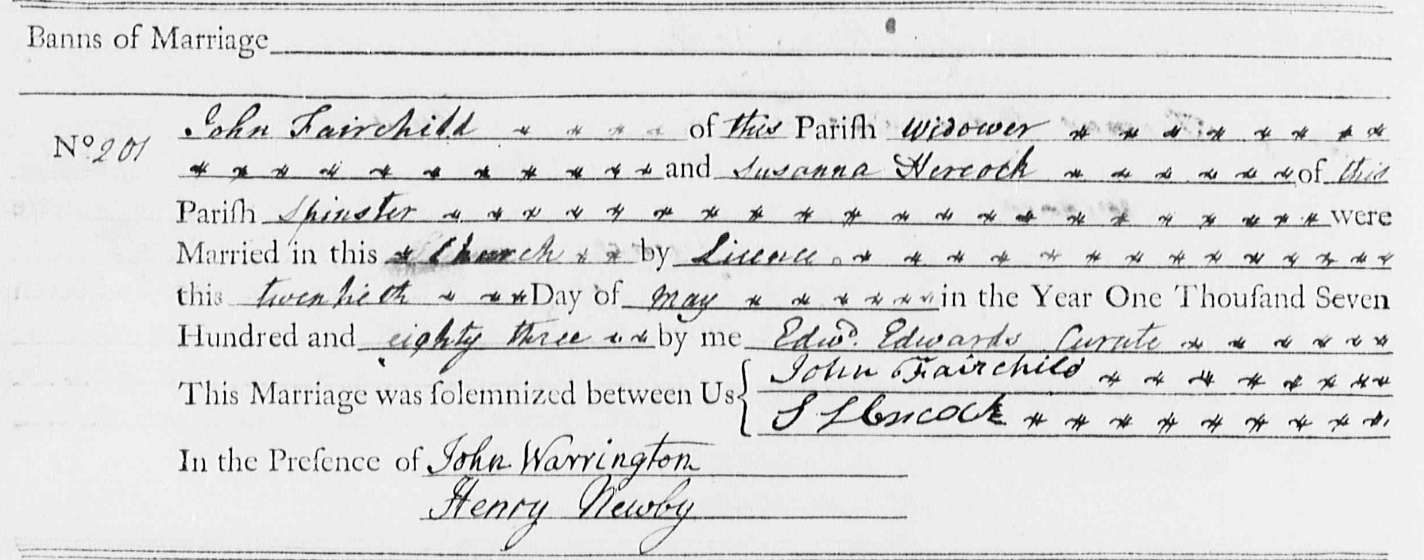 Banns of Marriage
Nº 201 John Fairchild of this Pariſh Widower
and Susanna Hercock of this
Pariſh Spinster were
Married in this Church by Licence
this twentieth Day of May in the Year One Thouſand Seven
Hundred and eighty three by me Edwd. Edwards Curate
This Marriage was ſolemnized between Us { John Fairchild
S Hercock
In the Preſence of John Warrington
Henry Newby